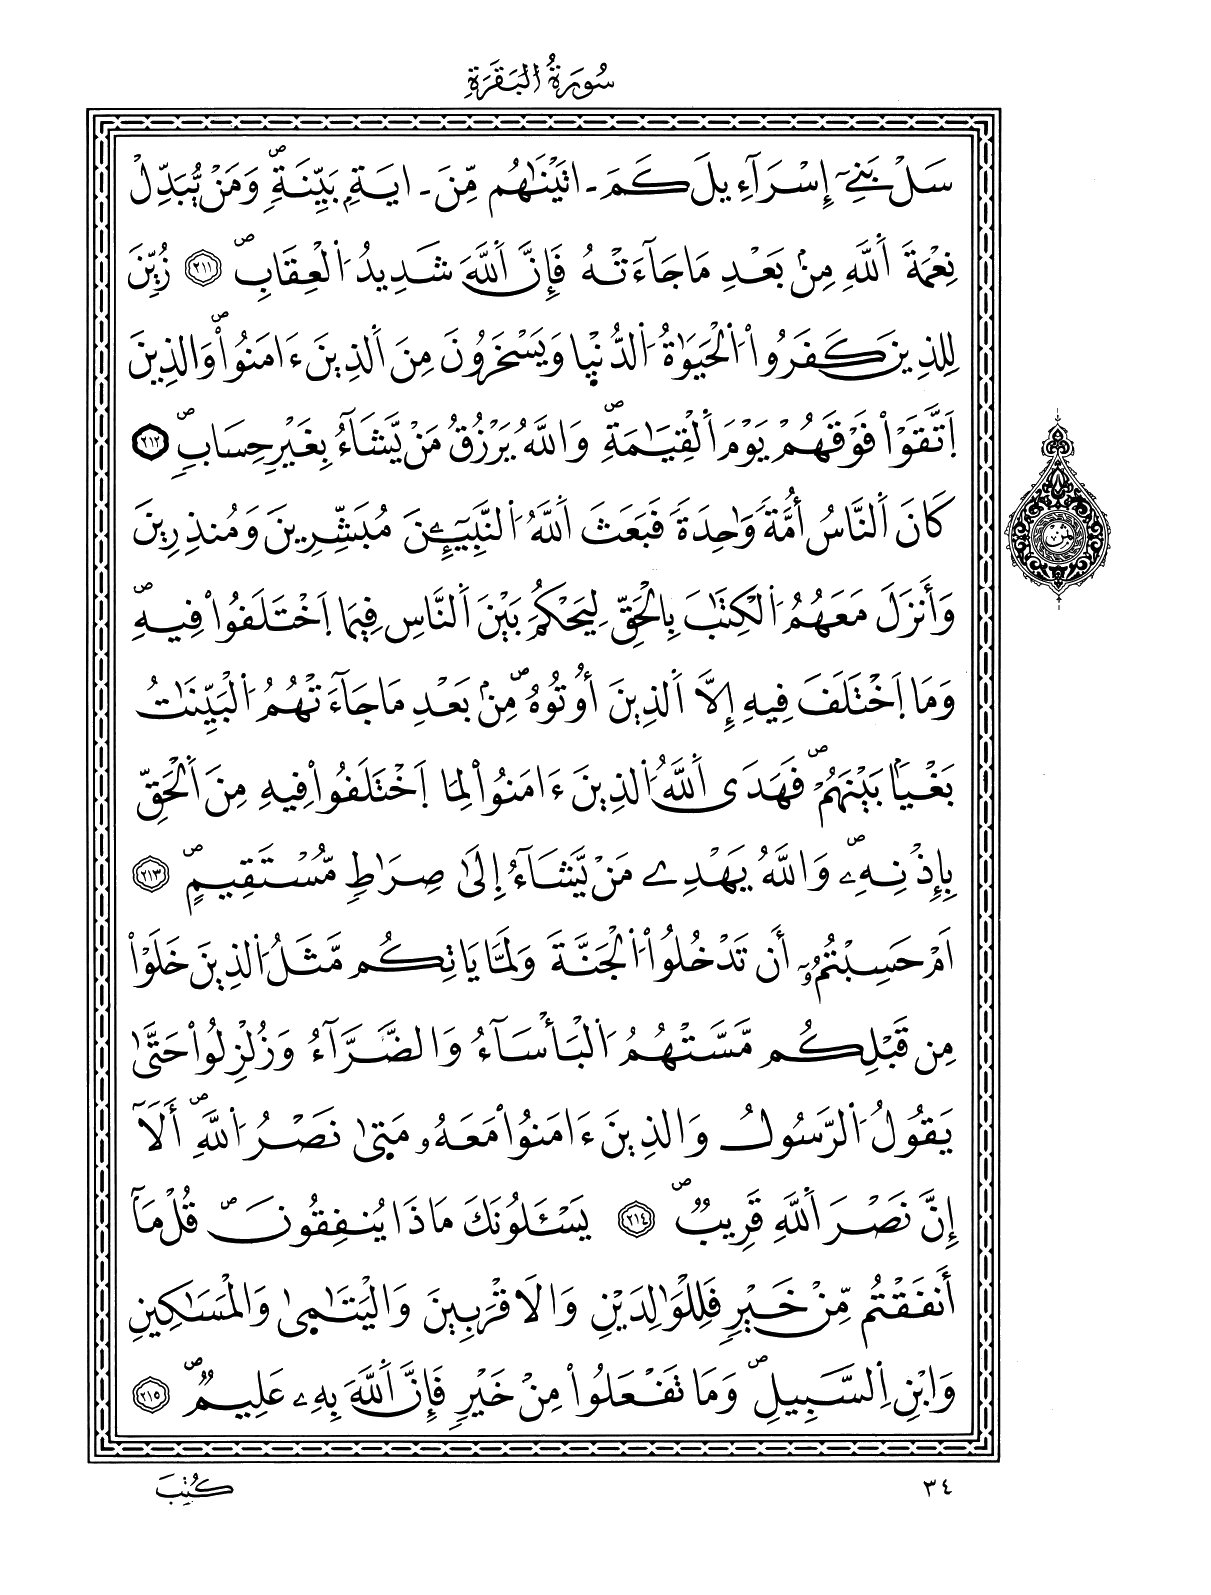 سُورَةُ الْبَقَرَةِ
سَلْ بَنِےٓ إِسْرَآءِيلَ كَمَ ـ اتَيْنَٰهُم مِّنَ ـ ايَةِۢ بَيِّنَةٍۖ وَمَنْ يُّبَدِّلْ
نِعْمَةَ اَ۬للَّهِ مِنۢ بَعْدِ مَا جَآءَتْهُ فَإِنَّ اَ۬للَّهَ شَدِيدُ اُ۬لْعِقَابِۖ ٢١١ زُيِّنَ
لِلذِينَ كَفَرُواْ اُ۬لْحَيَوٰةُ اُ۬لدُّنْي۪ا وَيَسْخَرُونَ مِنَ اَ۬لذِينَ ءَامَنُواْۖ وَالذِينَ
اَ۪تَّقَوْاْ فَوْقَهُمْ يَوْمَ اَ۬لْقِيَٰمَةِۖ وَاللَّهُ يَرْزُقُ مَنْ يَّشَآءُ بِغَيْرِ حِسَابٖۖ ٢١٢
كَانَ اَ۬لنَّاسُ أُمَّةٗ وَٰحِدَةٗ فَبَعَثَ اَ۬للَّهُ اُ۬لنَّبِيٓـِٕينَ مُبَشِّرِينَ وَمُنذِرِينَ
وَأَنزَلَ مَعَهُمُ اُ۬لْكِتَٰبَ بِالْحَقِّ لِيَحْكُمَ بَيْنَ اَ۬لنَّاسِ فِيمَا اَ۪خْتَلَفُواْ فِيهِۖ
وَمَا اَ۪خْتَلَفَ فِيهِ إِلَّا اَ۬لذِينَ أُوتُوهُ مِنۢ بَعْدِ مَا جَآءَتْهُمُ اُ۬لْبَيِّنَٰتُ
بَغْياَۢ بَيْنَهُمْۖ فَهَدَى اَ۬للَّهُ اُ۬لذِينَ ءَامَنُواْ لِمَا اَ۪خْتَلَفُواْ فِيهِ مِنَ اَ۬لْحَقِّ
بِإِذْنِهِۦۖ وَاللَّهُ يَهْدِے مَنْ يَّشَآءُ إِلَىٰ صِرَٰطٖ مُّسْتَقِيمٍۖ ٢١٣
اَمْ حَسِبْتُمُۥٓ أَن تَدْخُلُواْ اُ۬لْجَنَّةَ وَلَمَّا يَاتِكُم مَّثَلُ اُ۬لذِينَ خَلَوْاْ
مِن قَبْلِكُم مَّسَّتْهُمُ اُ۬لْبَأْسَآءُ وَالضَّرَّآءُ وَزُلْزِلُواْ حَتَّىٰ
يَقُولُ اُ۬لرَّسُولُ وَالذِينَ ءَامَنُواْ مَعَهُۥ مَت۪ىٰ نَصْرُ اُ۬للَّهِۖ أَلَآ
إِنَّ نَصْرَ اَ۬للَّهِ قَرِيبٞۖ ٢١٤ يَسْـَٔلُونَكَ مَاذَا يُنفِقُونَۖ قُلْ مَآ
أَنفَقْتُم مِّنْ خَيْرٖ فَلِلْوَٰلِدَيْنِ وَالَاقْرَبِينَ وَالْيَتَٰم۪ىٰ وَالْمَسَٰكِينِ
وَابْنِ اِ۬لسَّبِيلِۖ وَمَا تَفْعَلُواْ مِنْ خَيْرٖ فَإِنَّ اَ۬للَّهَ بِهِۦ عَلِيمٞۖ ٢١٥
٣٤
كُتِبَ